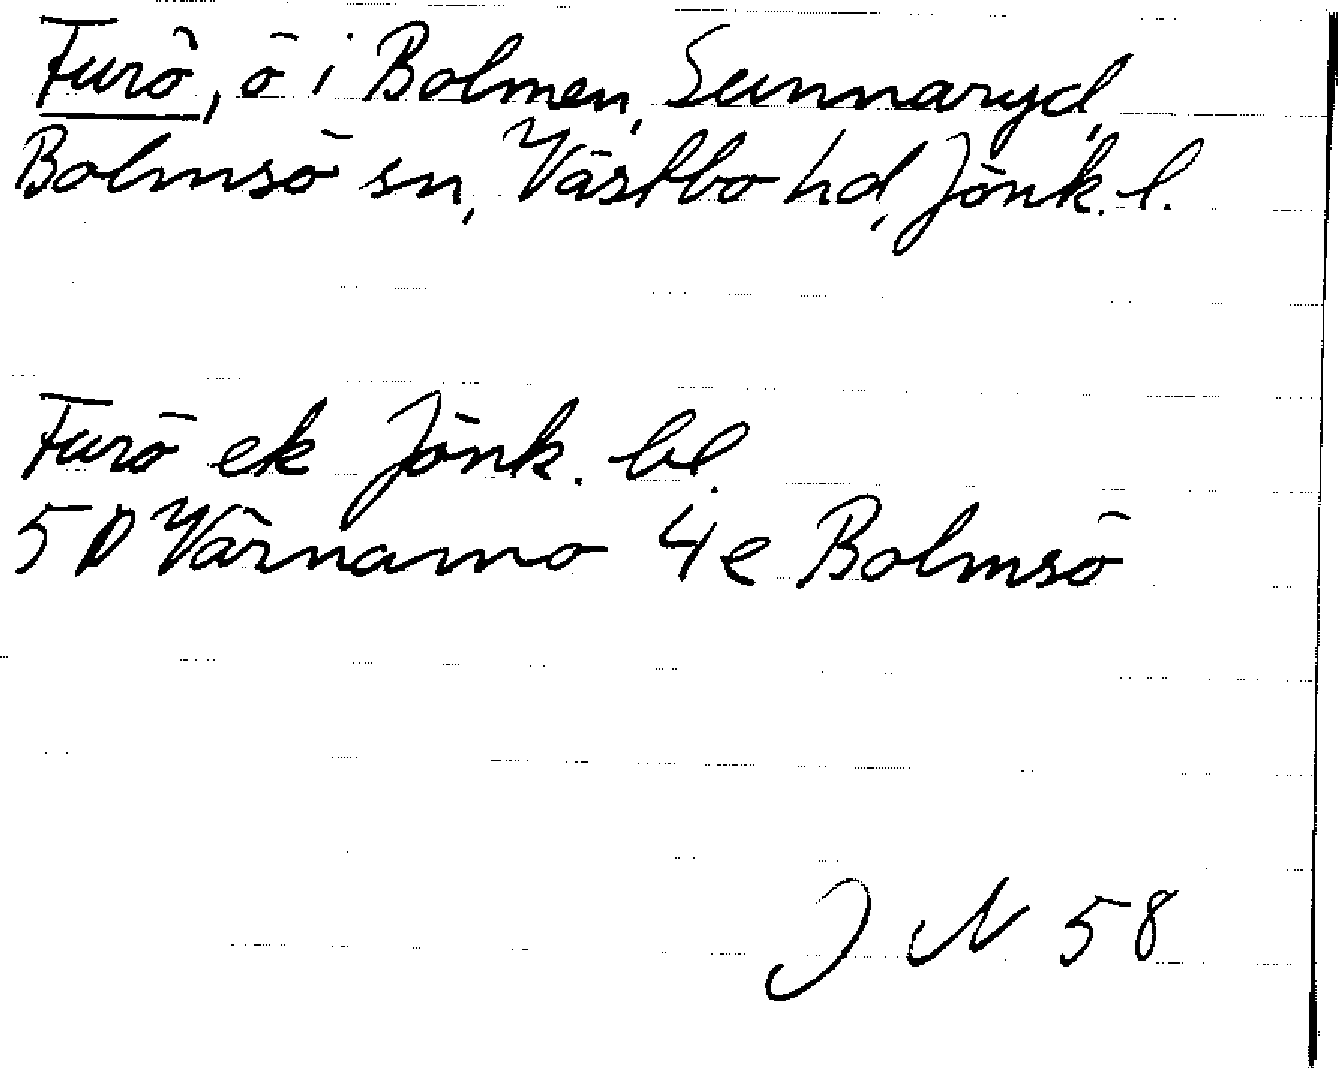 Furö, ö i Bolmen, Sunnaryd,
Bolmsö sn, Västbo hd, Jönk. l.
Furö ek Jönk. bl.
5D Värnamo 4e Bolmsö
J N 58